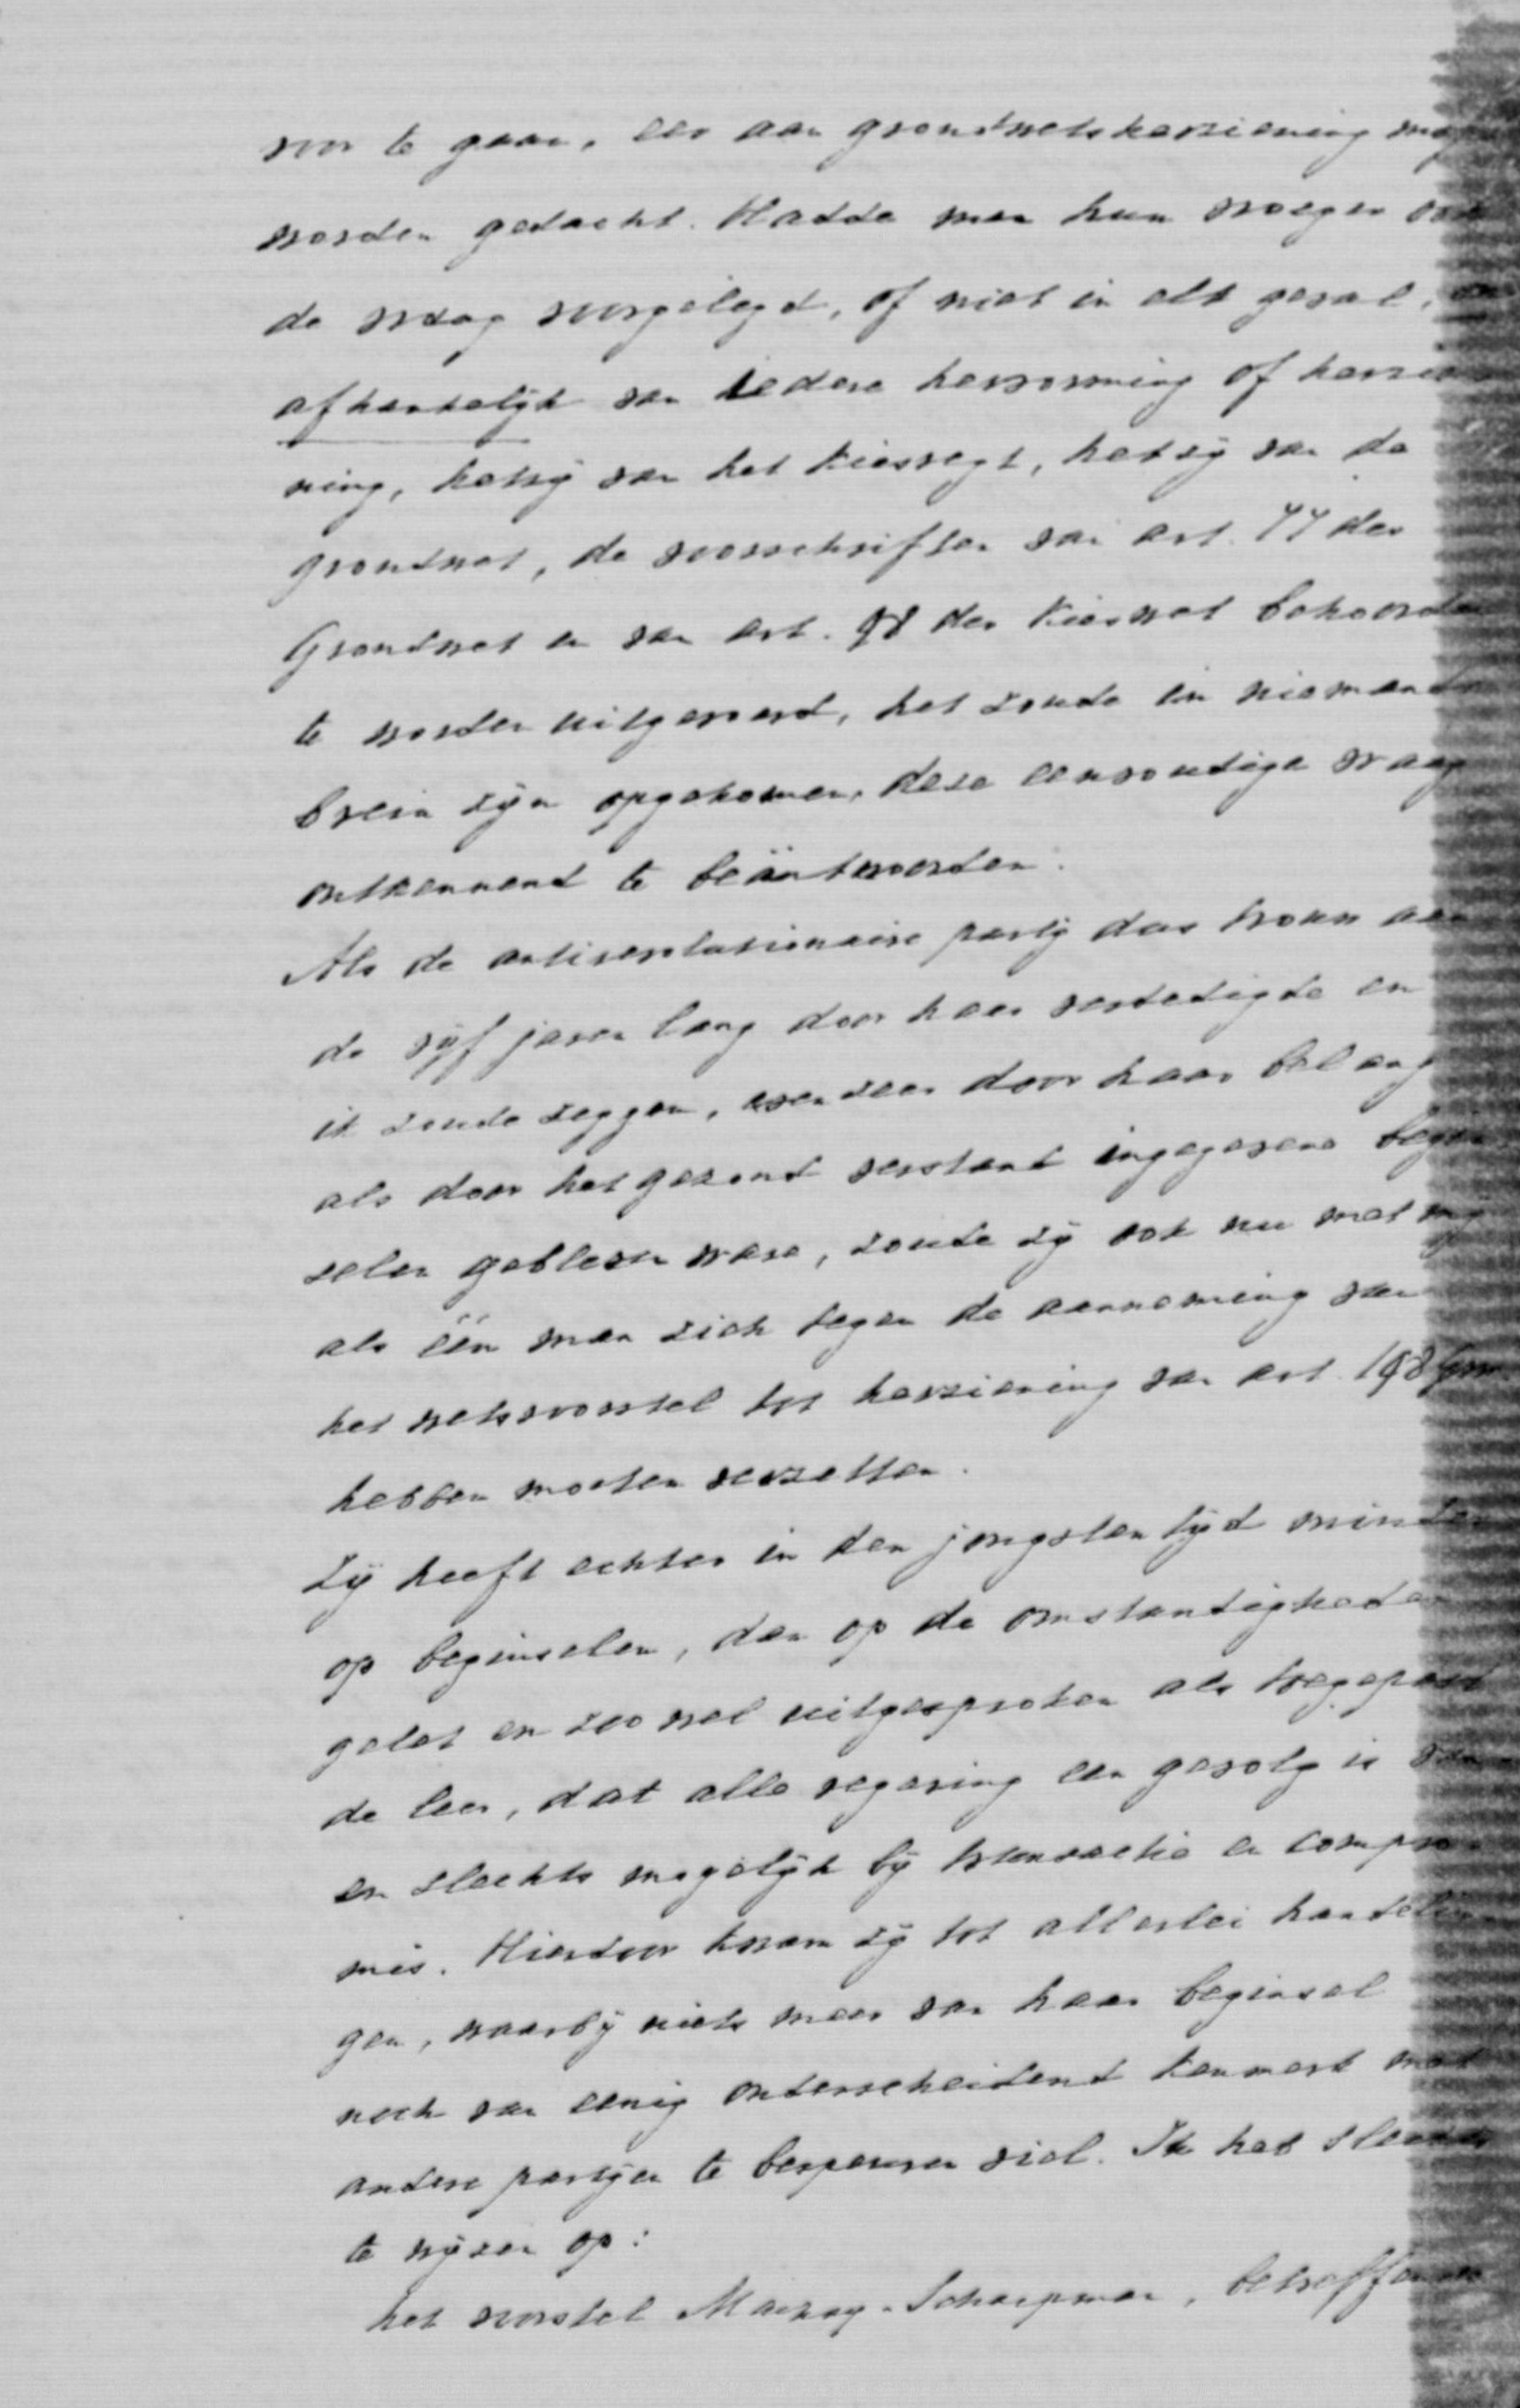 voor te gaan, eer aan grondwetsherziening mogt
worden gedacht. Hadde men hun vroeger ook
de vraag voorgelegd, of niet in elk geval,
afhankelijk van iedere hervorming of herzie-
ning, hetzij van het kiesregt, hetzij van de
grondwet, de voorschriften van art. 77 der
Grondwet en van art. 98 der Kieswet behoorden
te worden uitgevoerd, het zoude in niemands
brein zijn opgekomen, deze eenvoudige vraag
ontkennend te beäntwoorden.
Als de antirevolutionaire partij dus trouw aan
de vijf jaren lang door haar verdedigde en
ik zoude zeggen, evenzeer door haar belang
als door het gezond verstand ingegevene begin-
selen gebleven ware, zoude zij ook nu met mij
als één man zich tegen de aanneming van
het wetsvoorstel tot herziening van art. 198 Grw
hebben moeten verzetten.
Zij heeft echter in den jongsten tijd minder
op beginselen, dan op de omstandigheden
gelet en zoo wel uitgesproken als toegepast
de leer, dat alle regering een gevolg is van
en slechts mogelijk bij transactie en compro-
mis. Hierdoor kwam zij tot allerlei handelin-
gen, waarbij niets meer van haar beginsel
noch van eenig onderscheidend kenmerk met
andere partijen te bespeuren viel. Ik heb slechts
te wijzen op:
het voorstel Mackay-Schaepman, betreffende